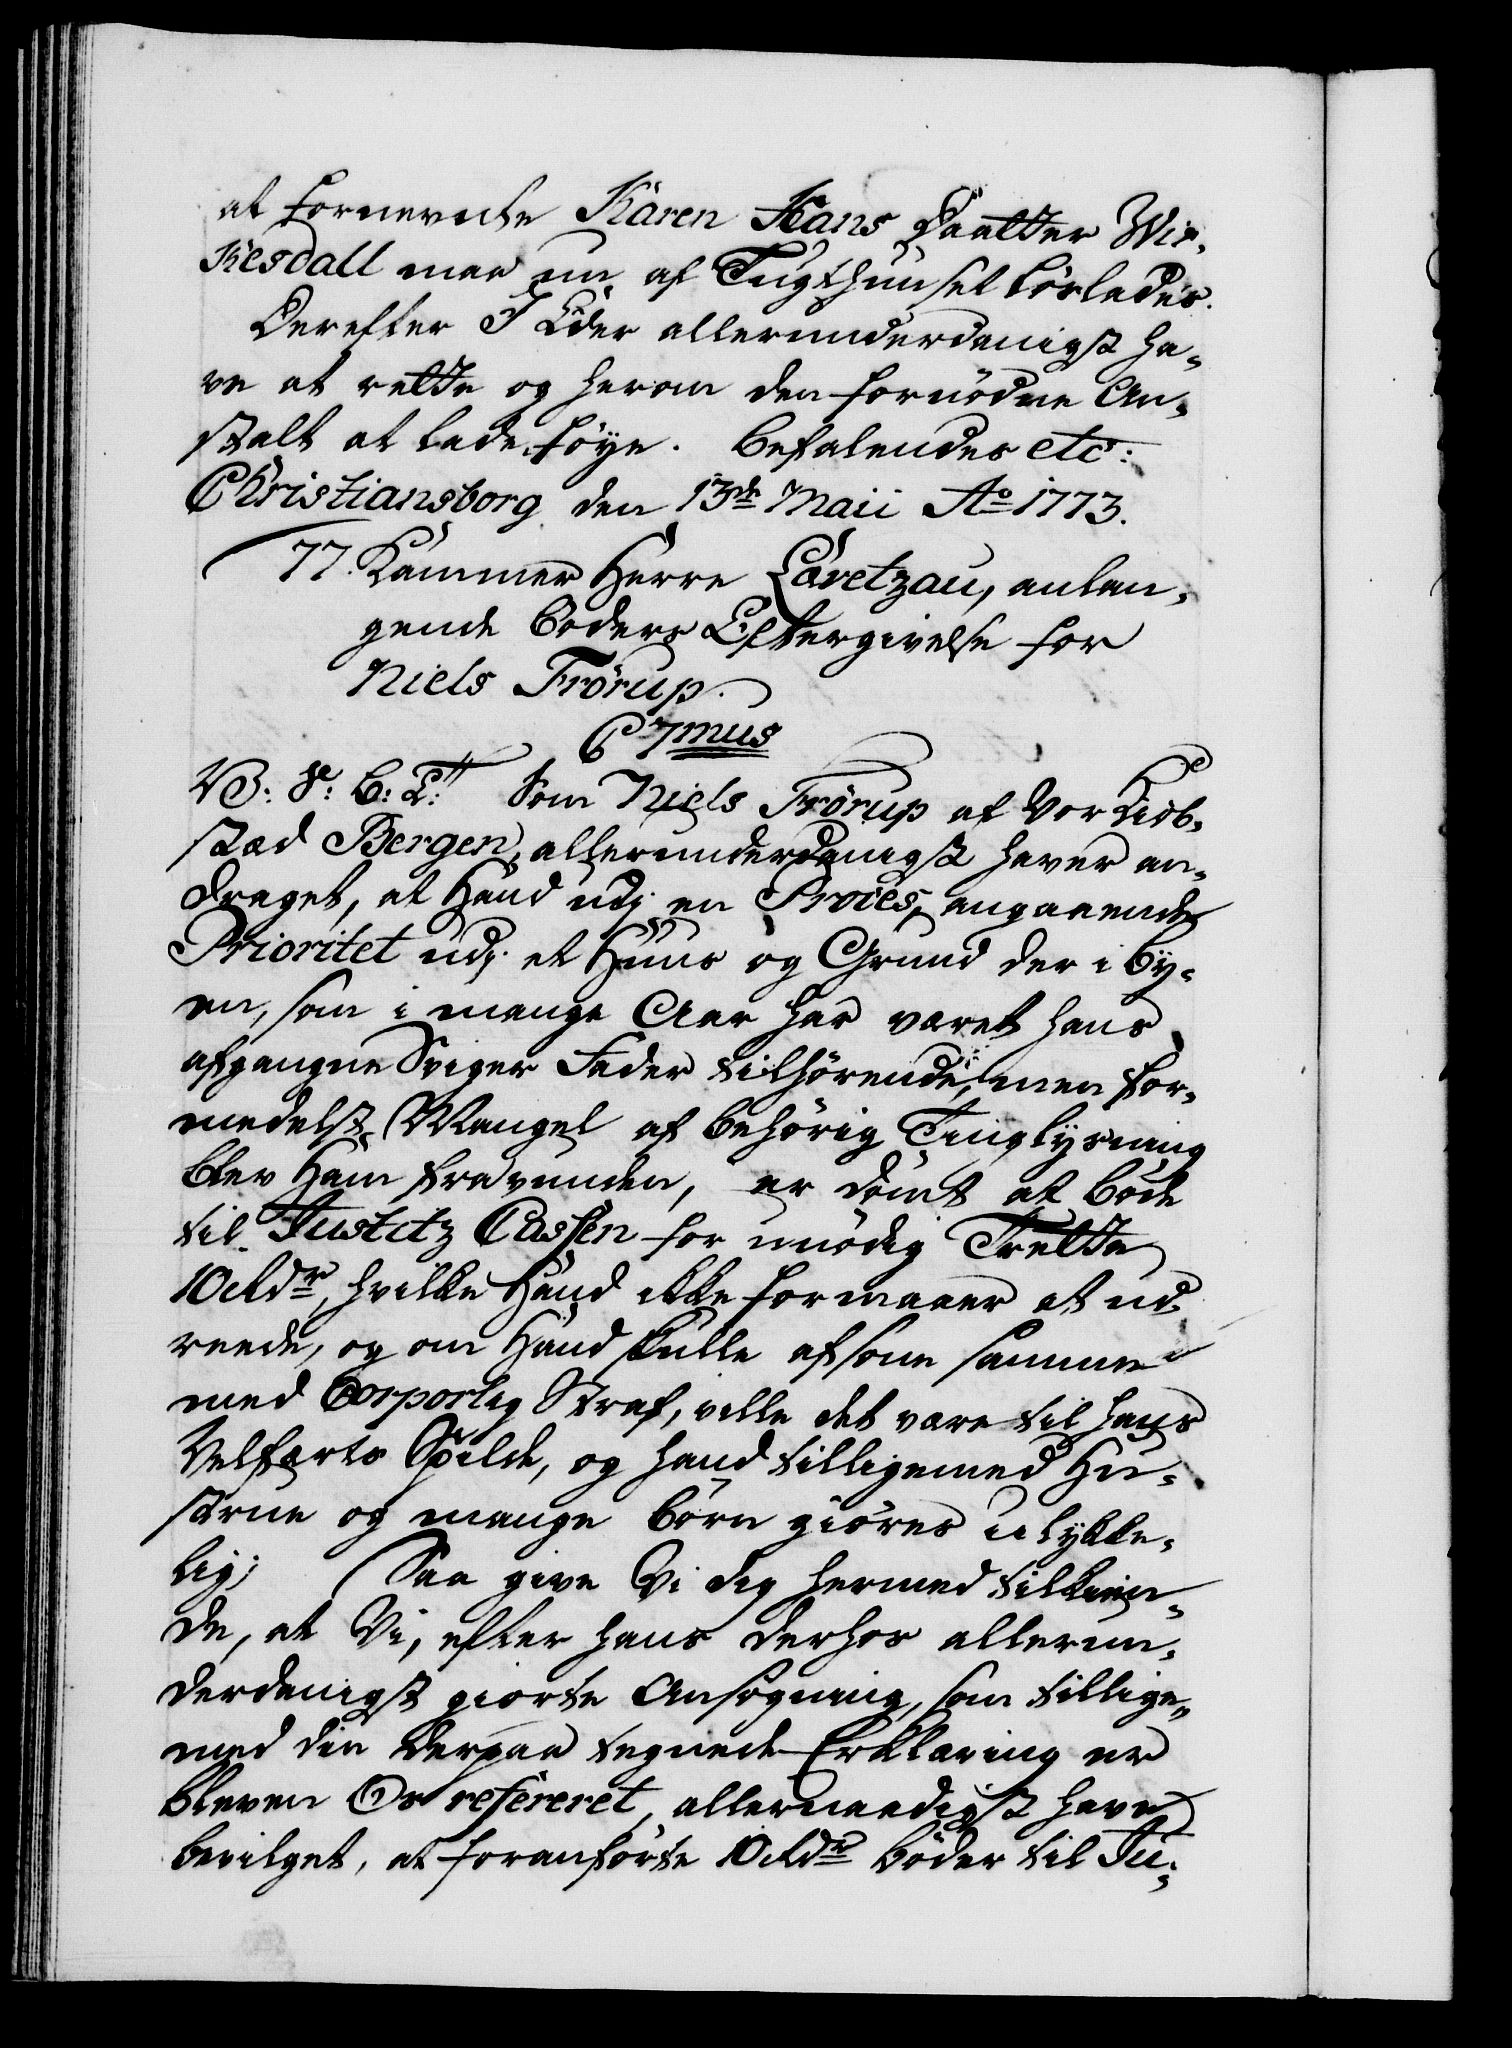 at fornevnte Karen Hans Daatter Wir-
kesdall maa nu af Tugthuuset løslades.
Derefter I Eder allerunderdanigst ha-
ve at rette og herom den fornödne An-
stalt at lade föye. Befalendes etc:
Christiansborg den 13de Maii Ao 1773.
77. Kammer Herre Levetzau, anlan-
gende Böders Eftergivelse for
Niels Trörup.
C 7mus
V: S: B: T: Som Niels Trörup af Vor Kiöb-
stæd Bergen, allerunderdanigst haver an-
draget, at Hand udj en Proces, angaaende
Prioritet udj et Huus og Grund der i By-
en, som i mange Aar har været hans
afgangne Sviger Fader tilhörende, men for-
medelst Mangel af behörig Tinglysning
blev Ham fravunden, er dömt at böde
til Justitz Cassen for unödig Trette
10 Rdr, hvilke Hand ikke formaaer at ud-
reede, og om Hand skulle afsone samme
med Corporlig Straf, ville det være til hans
Velfærts Spilde, og Hand tilligemed Hu-
strue og mange Börn giöres ulykke-
lig; Saa give Vi dig hermed tilkien-
de, at Vi, efter hans derhos allerun-
derdanigst giorte Ansögning, som tillige-
med din derpaa tegnede Erklæring er
bleven Os refereret, allernaadigst have
bevilget, at foranförte 10 Rdr Böder til Ju-